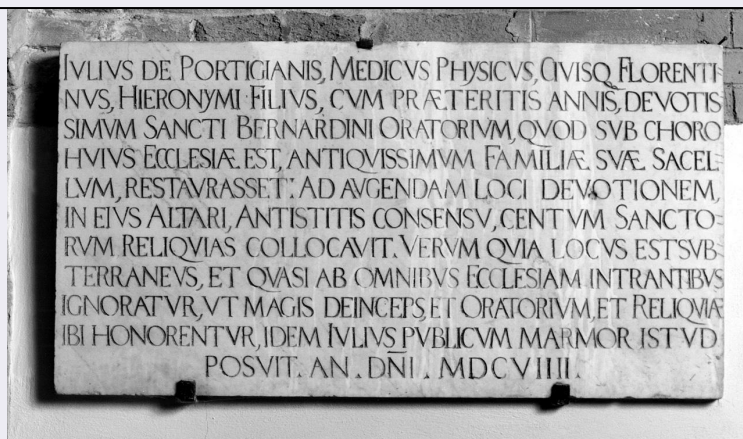 IVLIVS DE PORTIGIANIS, MEDICVS PHYSICVS, CIVISQ. FLORENTI=
NVS, HIERONYMI FILIVS, CVM PRÆTERITIS ANNIS, DEVOTIS
SIMVM SANCTI BERNARDINI ORATORIVM, QVOD SVB CHORO
HVIVS ECCLESIÆ EST, ANTIQVISSIMVM FAMILIÆ SVÆ SACEL=
LVM, RESTAVRASSET: AD AVGENDAM LOCI DEVOTIONEM,
IN EIVS ALTARI, ANTISTITIS CONSENSV, CENTVM SANCTO=
RVM RELIQVIAS COLLOCAVIT. VERVM QVIA LOCVS EST SVB=
TERRANEVS, ET QVASI AB OMNIBVS ECCLESIAM INTRANTIBVS
IGNORATVR, VT MAGIS DEINCEPS, ET ORATORIVM, ET RELIQVIÆ
IBI HONORENTVR, IDEM IVLIVS PVBLICVM MARMOR ISTVD
POSVIT. AN. DN̄I. MDCVIIII.